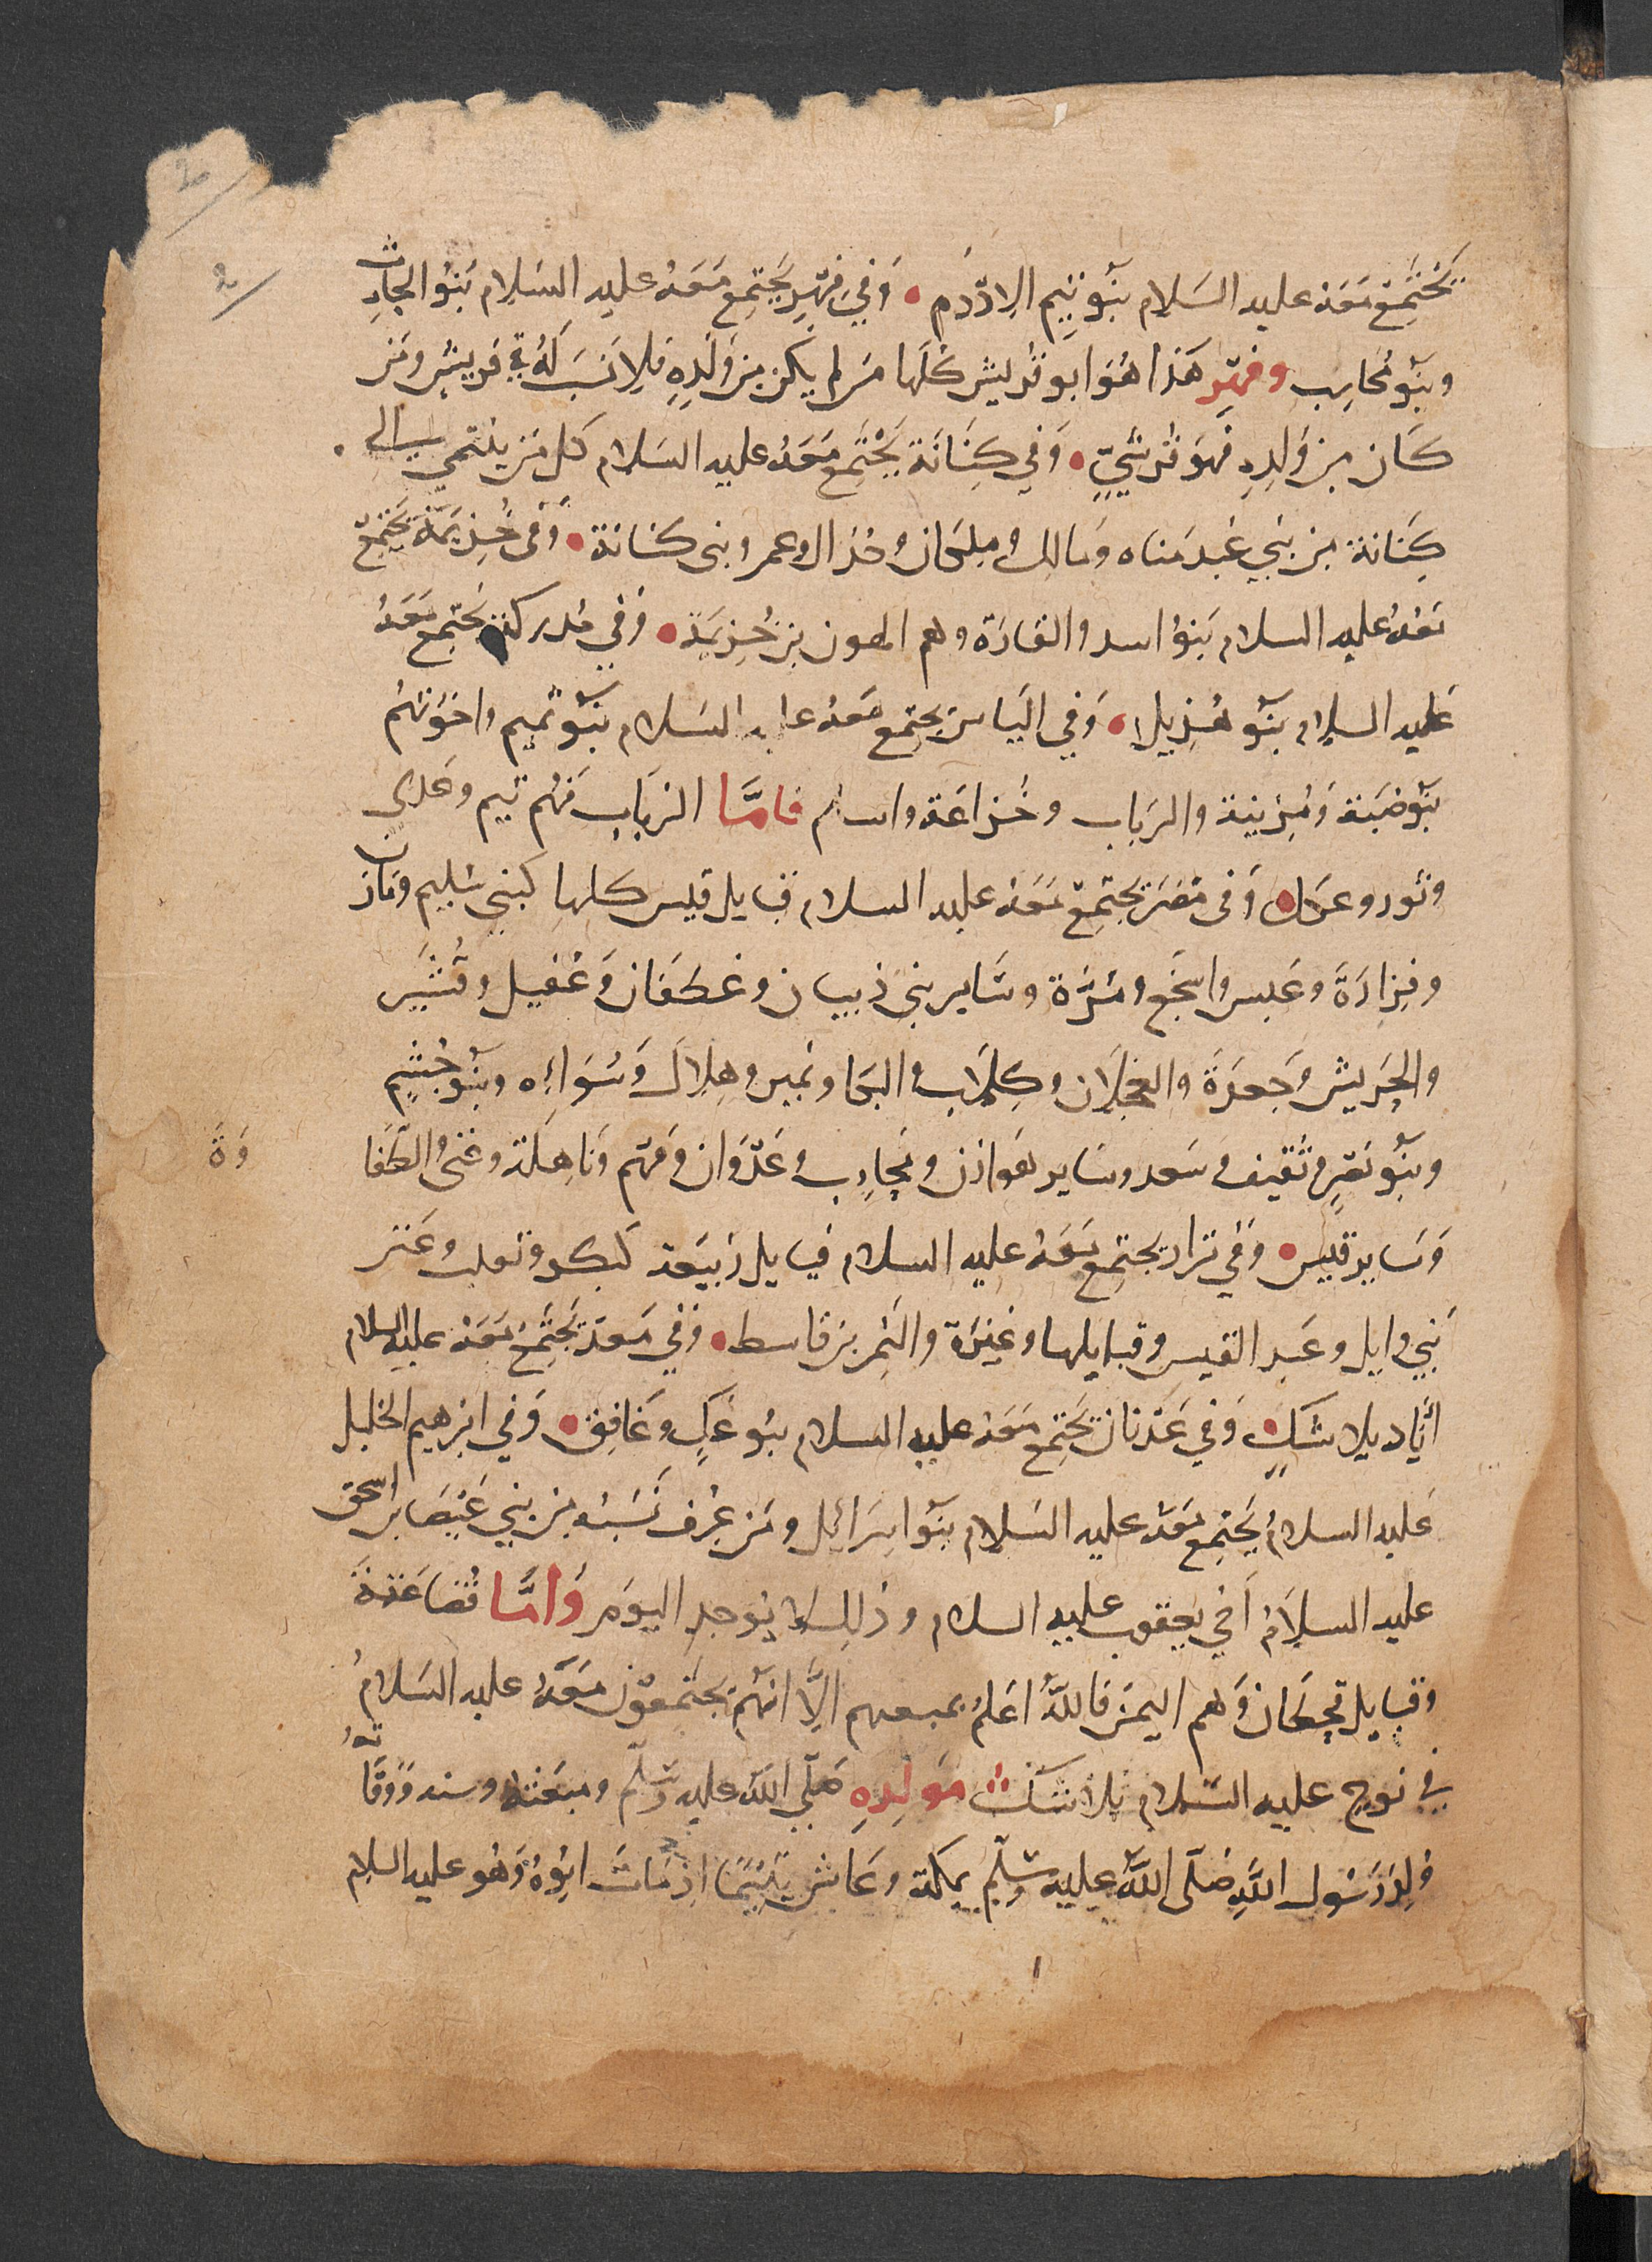 يَجْتَمِعُ مَعَه عليه السَلام بَنُو تَيم الادْرَم • وَفي فِهْرٍ يَجْتَمِع مَعَهُ عليه السَلام بَنُو الحَارِث
وبَنُو مُحَارِب وفهر هَذا هُوَ ابو قريش كُلّها مَن لم يكن مِن وَلَدِهِ فَلا نَسَبَ لَهُ في قريش ومَن
كَان مِن وَلَدِهِ فهوَ قرشيٌّ • وَفي كِنَانَة يَجْتَمِع مَعَهُ عليه السَلام كل مَن ينتمي الى
كِنَانة مِن بَنِي عَبد مَناه وَمَالك وملكان وحدال وعمرو بني كنانة • وَفي خُزيمَة يَجتَمِع
مَعَهُ عليه السلام بَنُو اسد والقارَة وهم الهون بن خُزيمَة • وَفي مُدركة يَجتمع مَعَهُ
عَليه السلام بَنُو هُذيل • وَفي اليَاس يجتمع مَعَهُ عليه السَلام بَنُو تميم واخوَتهُم
بَنُو ضبَة وَمُزينة والرباب وخُزاعَة واسلم فامَّا الربَاب فَهُم تيم وعَدي
وثور وعكل • وَفي مُضَر يَجتَمِعُ مَعَهُ عليه السلام قبايل قيس كلها كبني سُليم ومَازن
وفزارَةَ وعَبس واشجَع ومُرَّة وسَاير بني ذبيان وغطفان وَعُقيل وقُشَير
والحَريش وَجعدَةَ والعجلان وكِلاب والبكا ونمير وهِلال وَسُوَاءه وبَنُو جُشم
وبَنُو نَصْر وثقيف وسَعد وسَاير هَوازن ومحارب وعَدْوَان وَفَهم وَباهِلَة وغني والطُفَا
وَةَ
وَسَاير قيس • وَفي نزار يجتمع مَعَهُ عليه السلام قبايل رَبيعَة كَبكر وتغلب وعَنز
بَني وايل وعَبد القيس وقبايلها وعَنَزَة والنَمِر بن قاسط • وَفي مَعدّ يَجْتَمِعُ مَعَهُ عليه السلام
ايَّاد بلا شَكٍ وَفي عَدنان يَجتَمِع مَعَهُ عليه السلام بَنُو عَكٍ وغَافِق • وَفي ابرَهيم الخليل
عَليه السلامُ يَجتَمِع مَعَهُ عليه السَلام بَنُو اسرَائيل ومَن عُرف نَسَبُه من بني عَيصَا بن اسحق
عليه السلَامُ اَخي يَعقوب عليه السلام وذلِكَ لا يُوجد اليَوم وَامَّا قُضاعَة
وقبايل قحطان وَهم اليمَن فَاللهُ اعلَمُ بجميعهم الَّا انهُم يَجتمعُون مَعَهُ عليه السَلامُ
في نوح عليه السَلام بلا شَكٍ مَولِدِهِ صَلّى الله عليه وسَلّم ومبعَثه وسنه وَوَفَاتُه
وُلِدَ رَسُول اللهِ صَلّى اللهُ عليه وسَلّم بمكة وعَاش يَتيمًا اذ مَاتَ ابُوهُ وَهُو عليه السلام